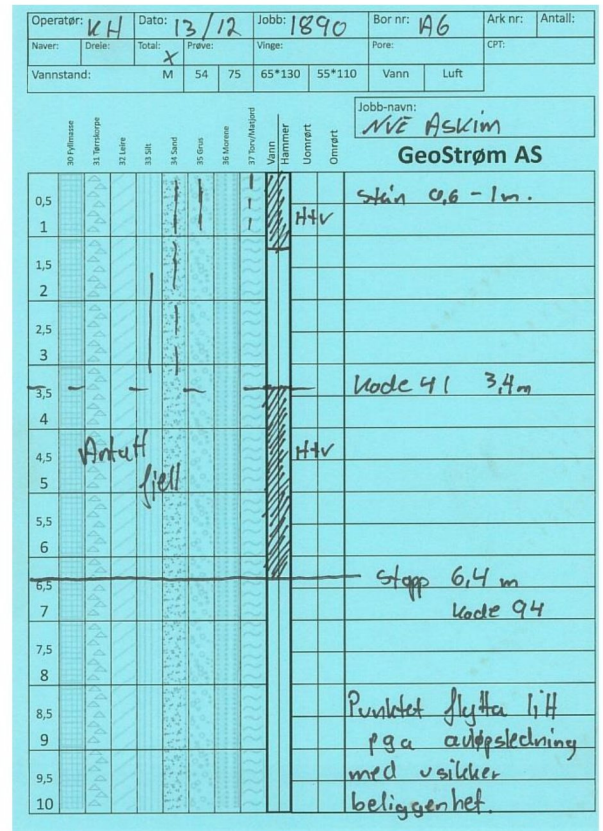 Operatør: KH Dato: 13/12 Jobb: 1890 Bor nr: A6 Ark nr: Antall:
Naver: Dreie: Total: X Prøve: Vinge: Pore: CPT:
Vannstand: M 54 75 65*130 55*110 Vann Luft
Jobb-navn:
NVE Askim
30 Fyllmasse 31 Tørrskorpe 32 Leire 33 Silt 34 Sand 35 Grus 36 Morene 37 Torv/Matjord Vann Hammer Uomrørt Omrørt
GeoStrøm AS
0,5 stein 0,6 - 1m.
1 H+V
1,5
2
2,5
3
3,5 Kode 41 3,4m
4
4,5 Antatt H+V
5 fjell
5,5
6
6,5 stopp 6,4 m
7 Kode 94
7,5
8
8,5 Punktet flytta litt
9 pga avløpsledning
9,5 med usikker
10 beliggenhet.